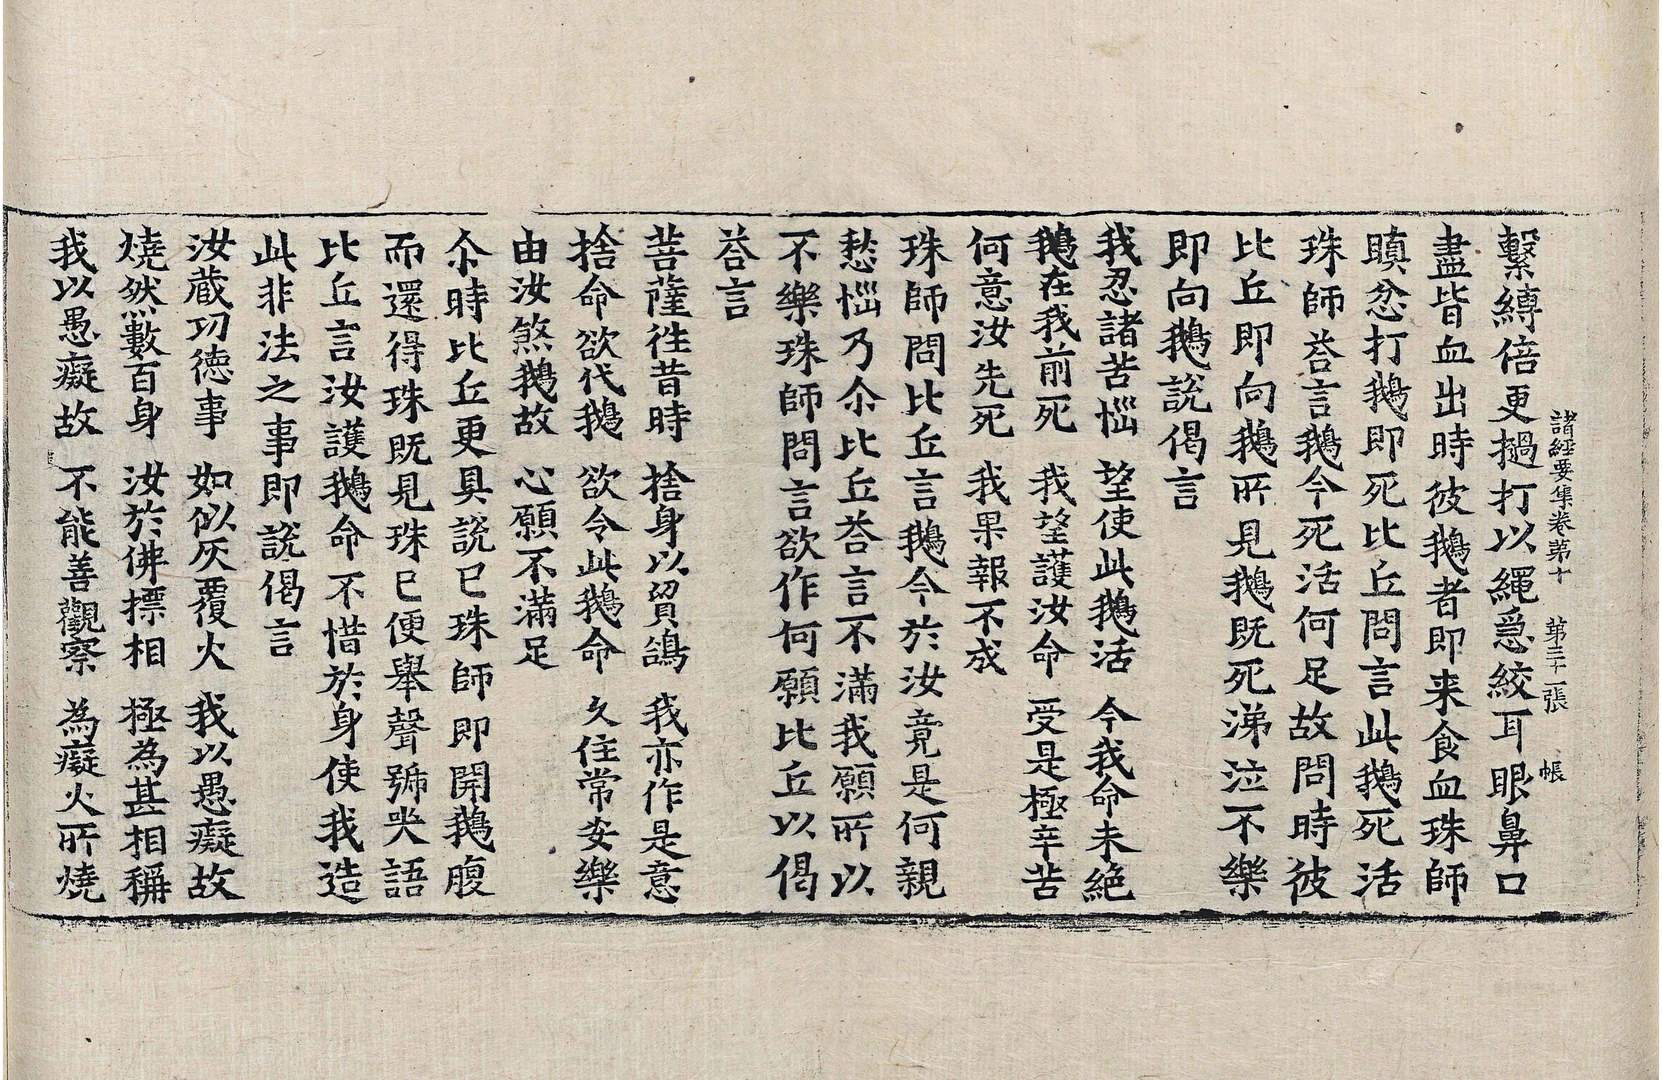 諸經要集卷第十 第三十一張 帳
繫縛倍更撾打以繩急絞耳眼鼻口
盡皆血出時彼鵝者即来食血珠師
瞋忿打鵝即死比丘問言此鵝死活
珠師荅言鵝今死活何足故問時彼
比丘即向鵝所見鵝既死涕泣不樂
即向鵝說偈言
我忍諸苦惱 望使此鵝活 今我命未絶
鵝在我前死 我望護汝命 受是極辛苦
何意汝先死 我果報不成
珠師問比丘言鵝今於汝竟是何親
愁惱乃尒比丘荅言不滿我願所以
不樂珠師問言欲作何願比丘以偈
荅言
菩薩往昔時 捨身以貿鴿 我亦作是意
捨命欲代鵝 欲令此鵝命 久住常安樂
由汝煞鵝故 心願不滿足
尒時比丘更具說已珠師即開鵝腹
而還得珠既見珠已便舉聲號哭語
比丘言汝護鵝命不惜於身使我造
此非法之事即說偈言
汝蔵功德事 如似灰覆火 我以愚癡故
燒然數百身 汝於佛摽相 極為甚相稱
我以愚癡故 不能善觀察 為癡火所燒